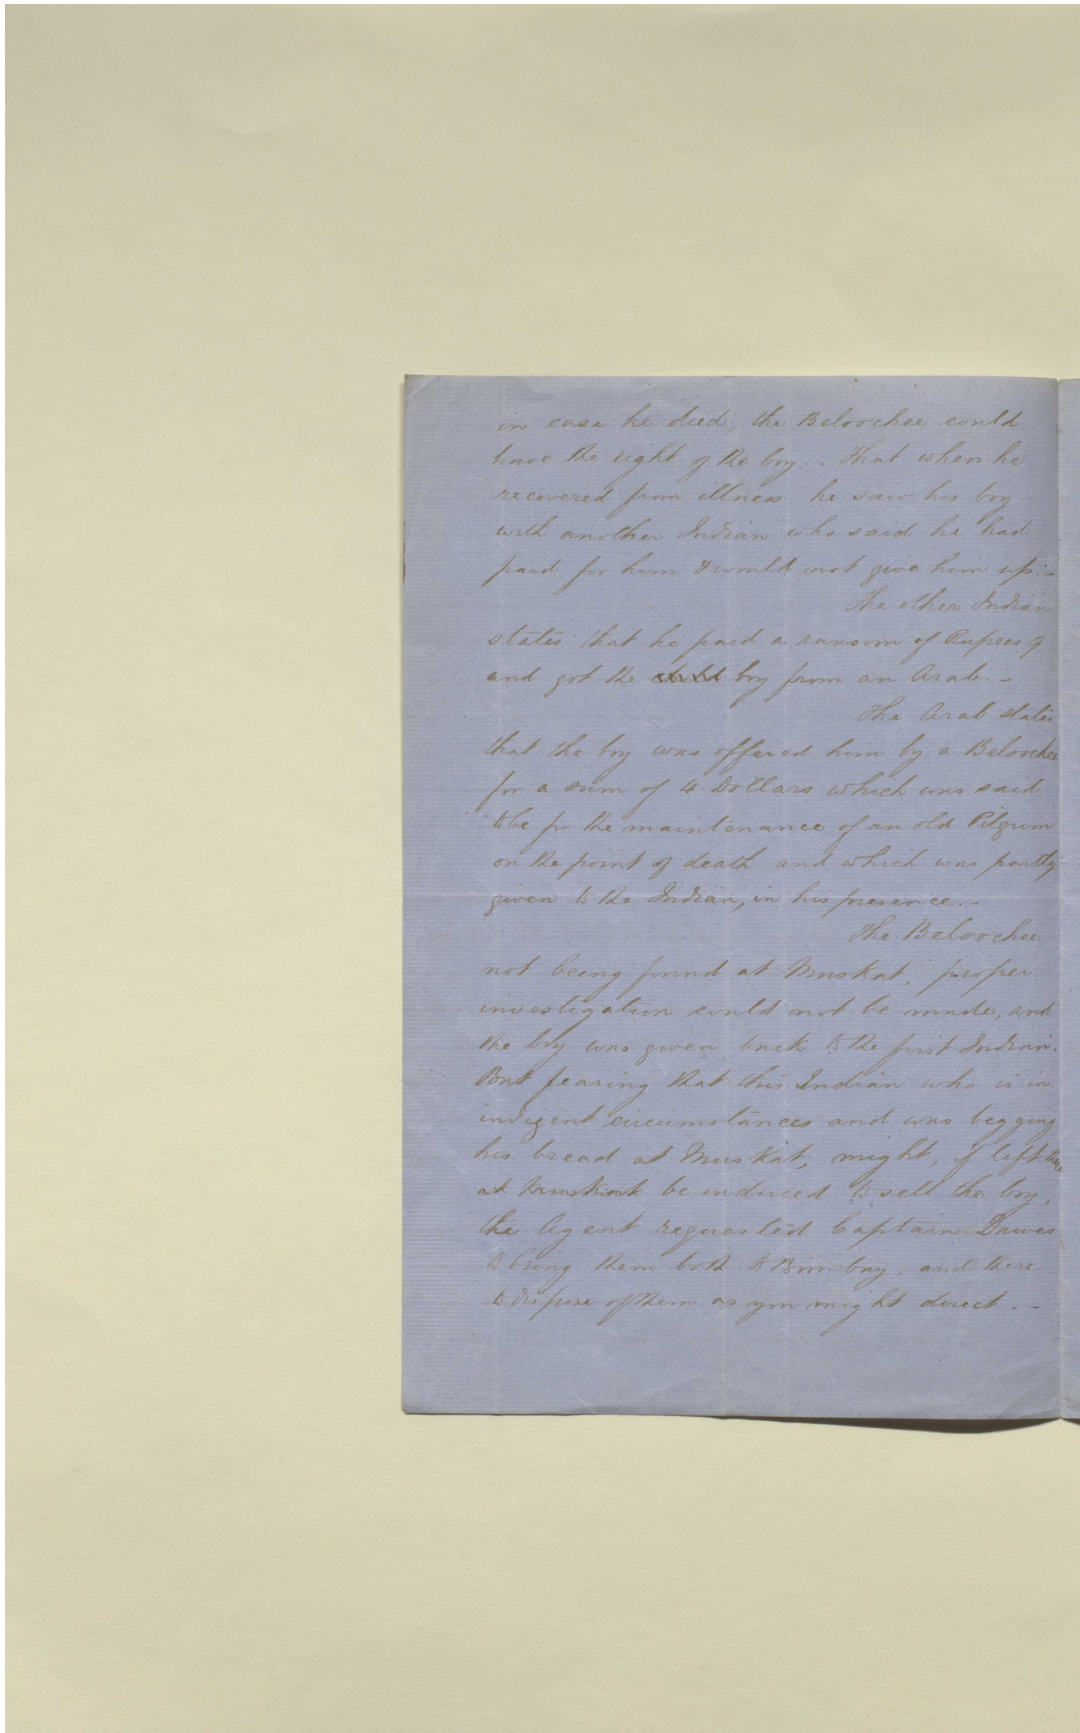 in case he died, the Beloochee could
have the right of the boy. . That when he
recovered from illness, he saw his boy
with another Indian who said he had
paid for him & would not give him up:-
The other Indian
states that he paid a ransom of Rupees 9
and got the child boy from an Arab. -
The Arab states
that the boy was offered him by a Beloochee
for a sum of 4 Dollars which was said
to be for the maintenance of an old Pilgrim
on the point of death and which was partly
given to the Indian, in his presence. -
The Beloochee
not being found at Muskat, proper
investigation could not be made, and
the boy was given back to the first Indian.
But fearing that this Indian who is in
indigent circumstances and was begging
his bread at Muskat, might, if left there
at Muskat be induced to sell the boy,
the Agent requested Captain Dawes
to bring them both to Bombay, and there
to dispose of them as you might direct. -